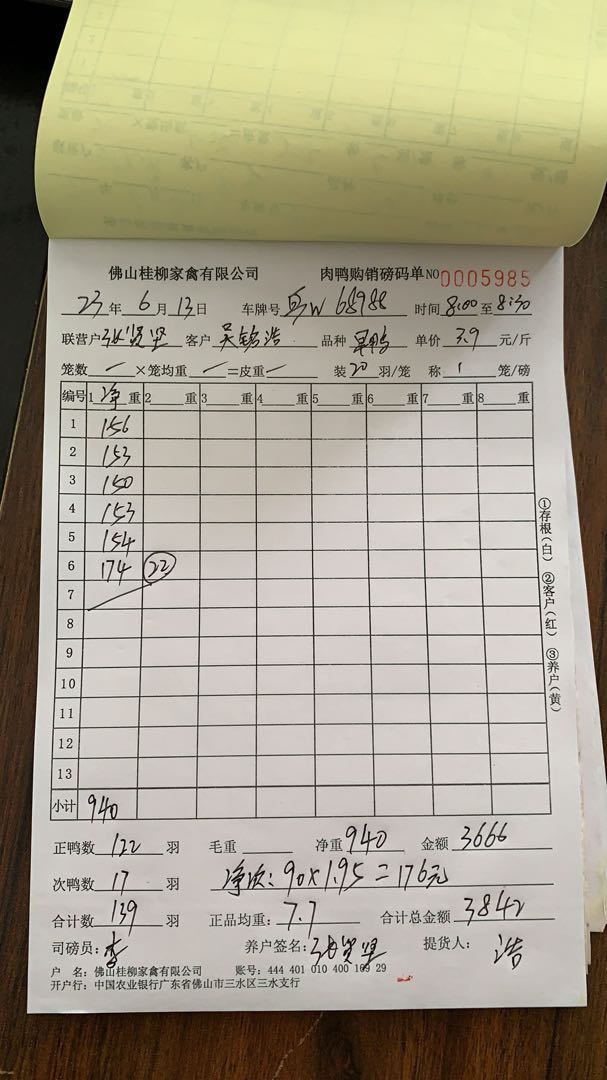 佛山桂柳家禽有限公司 肉鸭购销磅码单 NO 0005985
23年 6月 13日 车牌号 W 68988 时间 8:00 至 8:30
联营户 张贤坚 客户 吴铭浩 品种 单价 3.9 元/斤
笼数 — ×笼均重 — =皮重 — 装 20 羽/笼 称 1 笼/磅
编号 1 净 重 2 重 3 重 4 重 5 重 6 重 7 重 8 重
1 156
2 153
3 150
4 153
5 154
6 174 22
7
8
9
10
11
12
13
小计 940
①存根(白) ②客户(红) ③养户(黄)
正鸭数 122 羽 毛重 净重 940 金额 3666
次鸭数 17 羽 净次: 90×1.95=176元
合计数 139 羽 正品均重: 7.7 合计总金额 3842
司磅员: 李 养户签名: 张贤坚 提货人: 浩
户 名: 佛山桂柳家禽有限公司 账号: 444 401 010 400 169 29
开户行: 中国农业银行广东省佛山市三水区三水支行